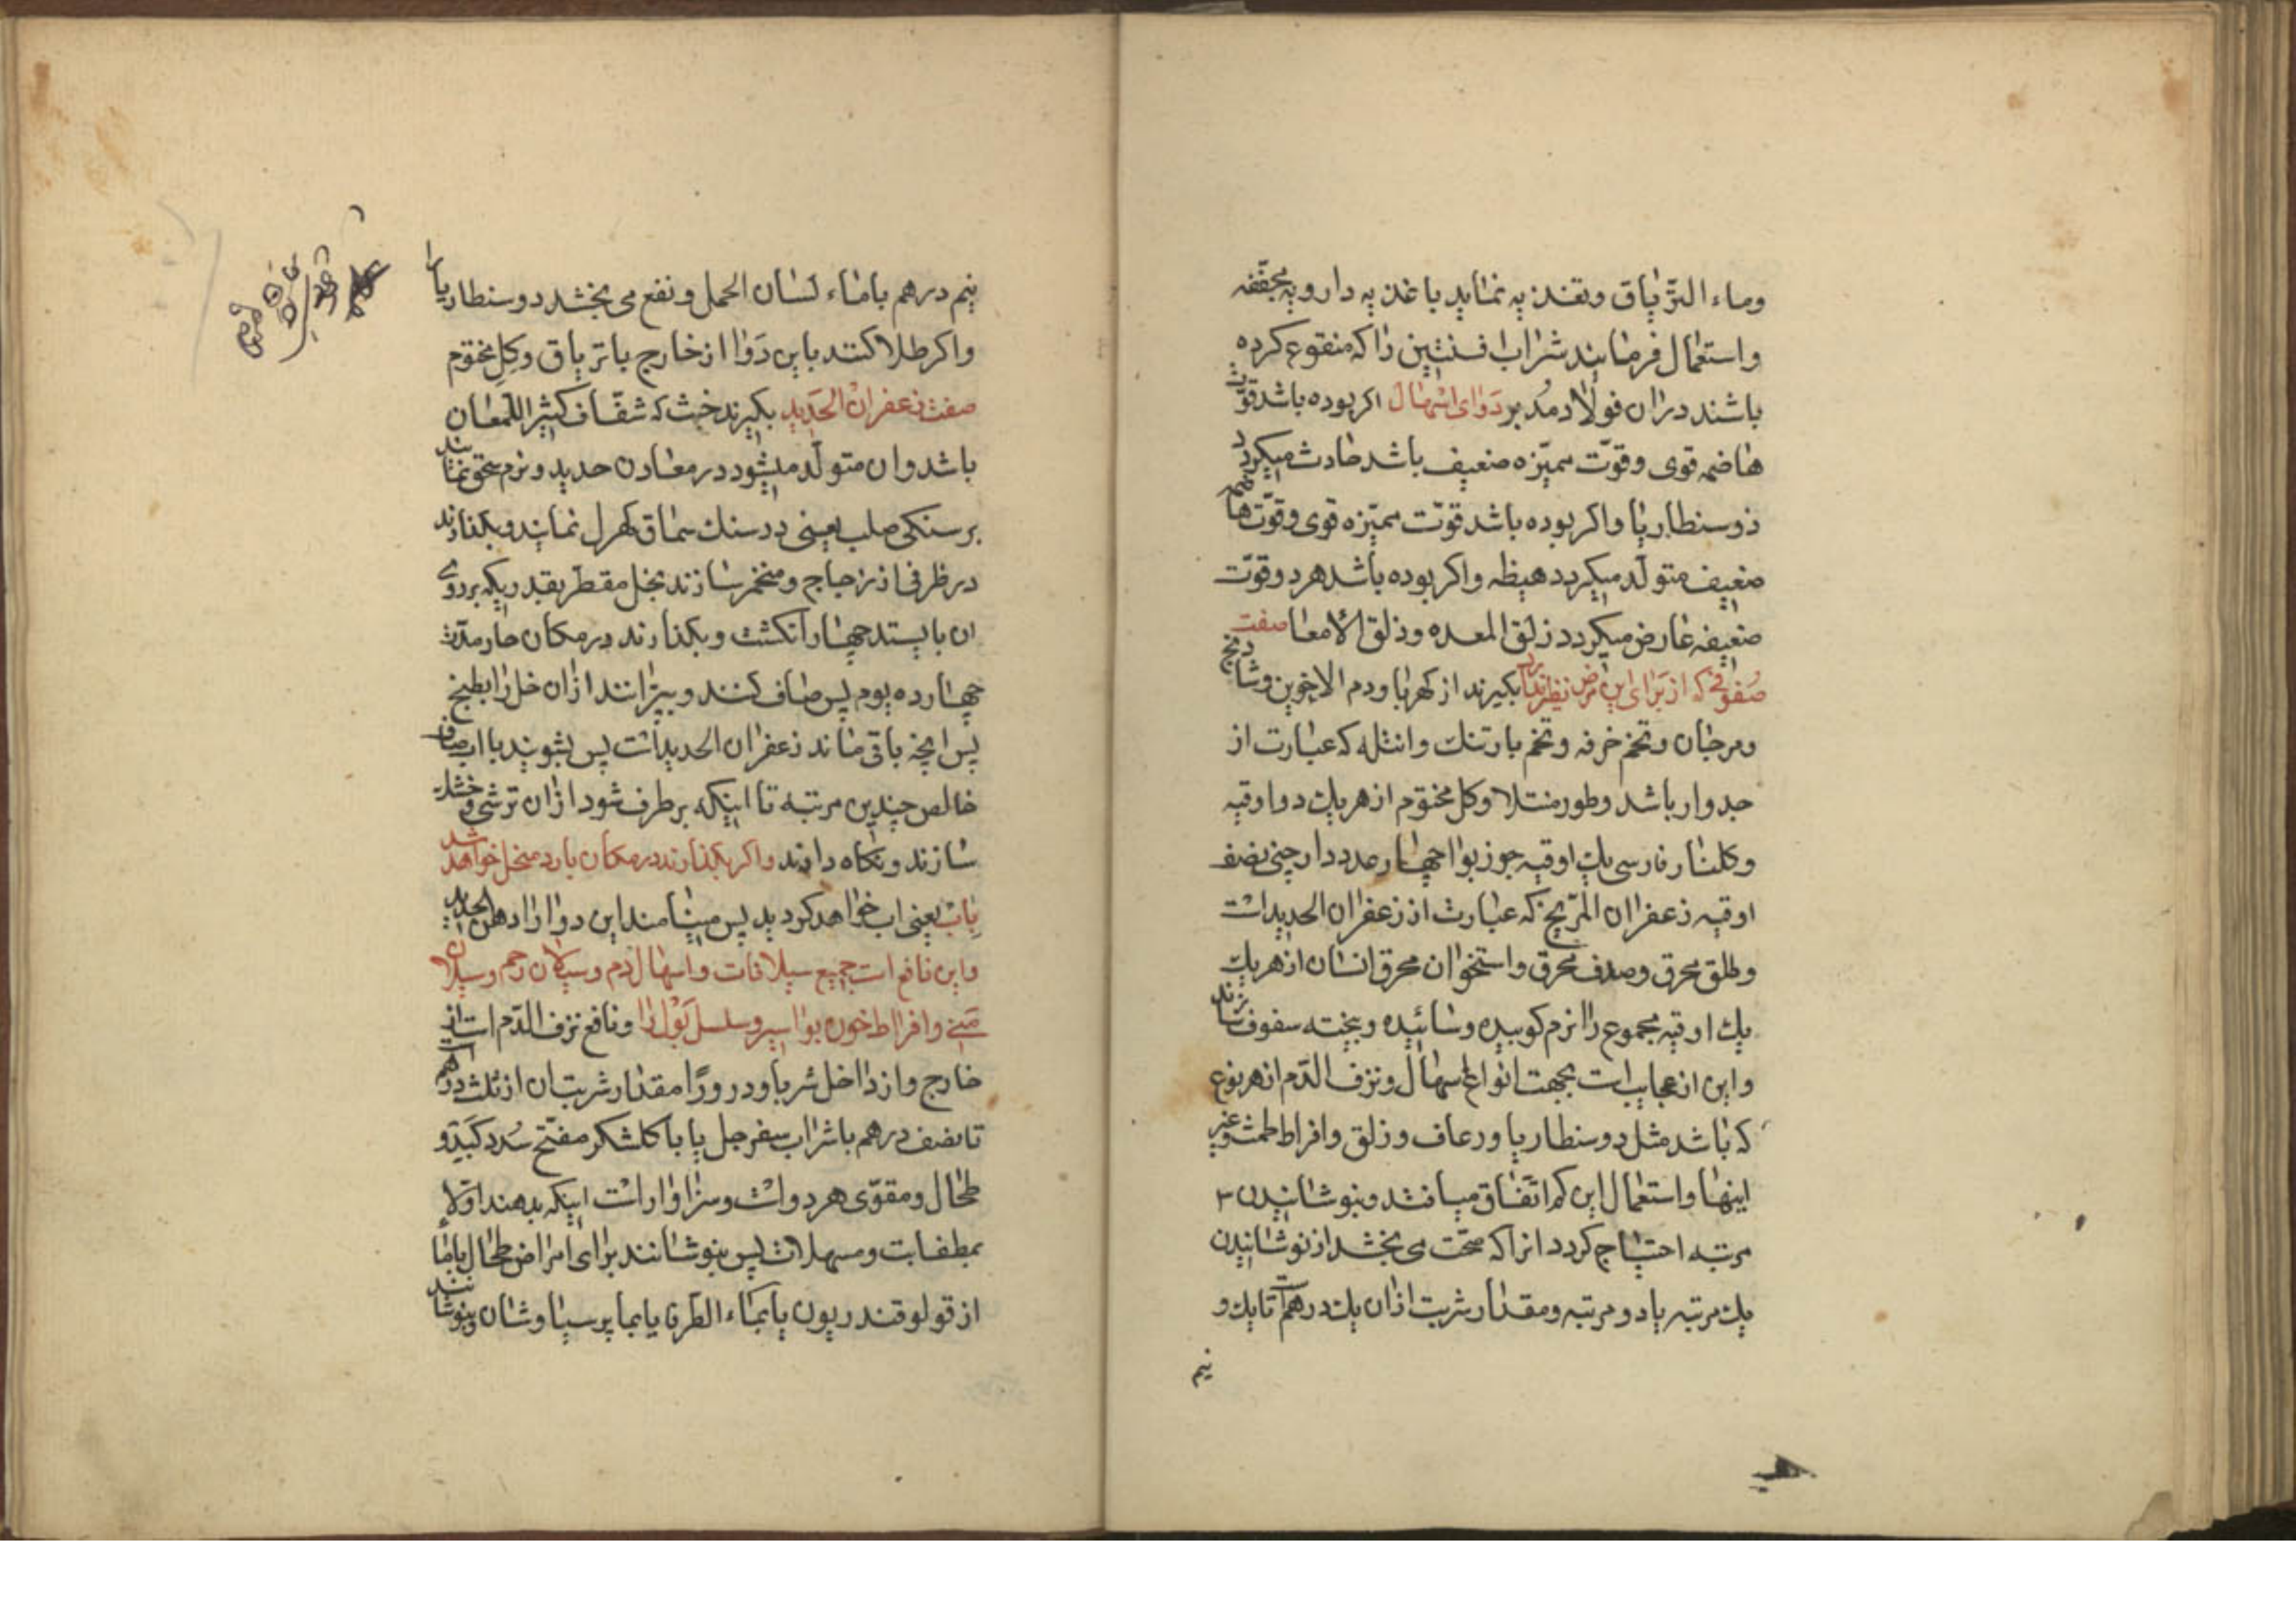 وماء التریاق وتغذیه نمایند باغذیه دارویه مجففه
واستعمال فرمایند شراب افسنتین را که منقوع کرده
باشند دران فولاد مدبر دوای اسهال اکر بوده باشد قوت
هاضمه قوی وقوّت ممیّزه ضعیف باشد حادث میکردد
ذوسنطاریا واکر بوده باشد قوّت ممیّزه قوی وقوّت هاضمه
ضعیف متولّد میکردد هیظه واکر بوده باشد هر دو قوّت
ضعیفه عارض میکردد زلق المعده وزلق الامعا صفت
سفوفی که از برای این مرض نظیر ندارد بکیرند از کهربا ودم الاخوین وشادنج
ومرجان وتخم خرفه وتخم بارتنك وانتله که عبارت از
جدوار باشد وطورمنتلا وکل مختوم از هریك دو اوقیه
وکلنار فارسی یك اوقیه جوز بوا چهار عدد دارچنی نصف
اوقیه زعفران المرّیخ که عبارت از زعفران الحدید است
وطلق محرق وصدف محرق واستخوان محرق انسان از هریك
یك اوقیه مجموع را نرم کوبیده وسائیده وبیخته سفوف سازند
واین از عجایب است بجهت انواع اسهال ونزف الدّم از هر نوع
که باشد مثل دوسنطاریا ورعاف وزلق وافراط طمث وغیر
اینها واستعمال این کم اتّفاق میافتد وبنوشانیدن ۳
مرتبه احتیاج کردد ازانکه صحّت می بخشد از نوشانیدن
یك مرتبه یا دو مرتبه ومقدار شربت ازان یك درهم است تا یك و
نیم
نیم درهم با ماء لسان الحمل ونفع می بخشد دوسنطاریا را
واکر طلا کنند باین دوا از خارج با تریاق وکل مختوم
صفت زعفران الحدید بکیرند خبث که شفّاف کثیر اللّمعان
باشد وان متولّد میشود در معادن حدید ونرم سحق نمایند
بر سنکی صلب یعنی در سنك سماق کهرل نمایند وبکذارند
در ظرفی از زجاج ومنخمر سازند بخل مقطر بقدریکه بر روی
ان بایستد چهار انکشت وبکذارند در مکان حار مدّت
چهارده یوم پس صاف کنند وبپرانند ازان خل را بطبخ
پس انچه باقی ماند زعفران الحدید است پس بشویند با اب صاف
خالص چندین مرتبه تا اینکه برطرف شود ازان ترشی وخشك
سازند ونکاه دارند واکر بکذارند در مکان بارد منحل خواهد شد
باب یعنی اب خواهد کردید پس مینامند این دوا را دهن الحدید
واین نافع است جمیع سیلانات واسهال دم وسیلان رحم وسیلان
منی وافراط خون بواسیر وسلسل بول را ونافع نزف الدّم است از
خارج واز داخل شربا ودرورا مقدار شربت ان از ثلث درهم است
تا نصف درهم با شراب سفرجل یا با کلشکر مفتّح سدد کبد و
طحال ومقوّی هر دو است وسزاوار است اینکه بدهند اوّلا
بمطفیات ومسهلات پس بنوشانند برای امراض طحال با ماء
از قولوقندریون یا بماء الطرفا یا بماء پرسیاوشان وبنوشانند